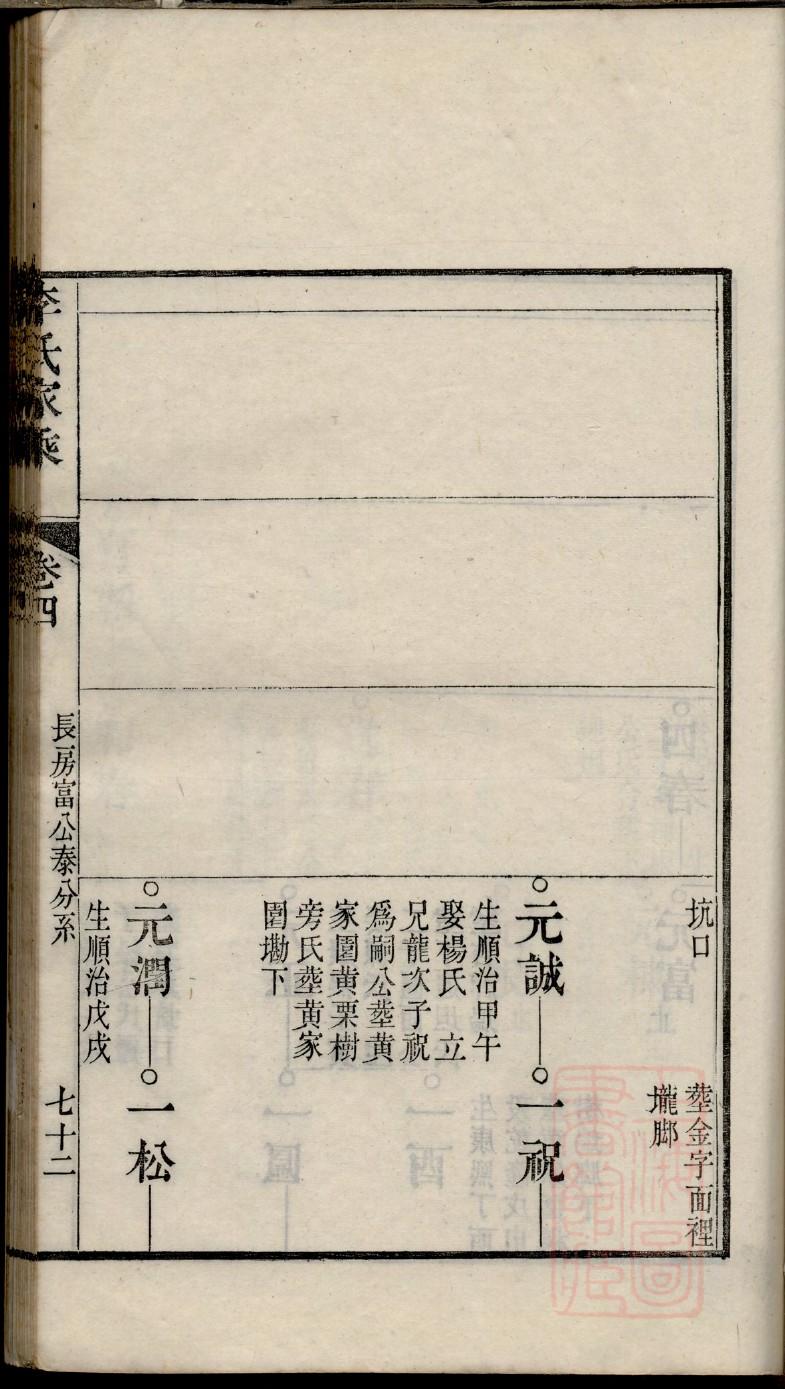 坑口
塟金字面裡
壠脚
元誠
一祝
生順治甲午
娶楊氏　立
兄龍次子祝
爲嗣公塟黄
家園黄栗樹
旁氏塟黄家
園墈下
元潤
一松
生順治戊戌
李氏家乘
卷四
長房富公泰分系
七十二